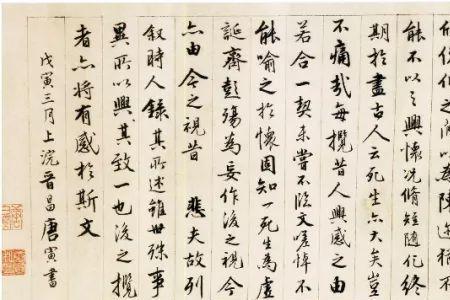 俯仰之間以為陳迹猶不
能不以之興懷況脩短隨化終
期於盡古人云死生亦大矣豈
不痛哉每攬昔人興感之由
若合一契未嘗不臨文嗟悼不
能喻之於懷固知一死生為虛
誕齊彭殤為妄作後之視今
亦由今之視昔 悲夫故列
敘時人錄其所述雖世殊事
異所以興其致一也後之攬
者亦將有感於斯文
戊寅三月上浣晉昌唐寅書